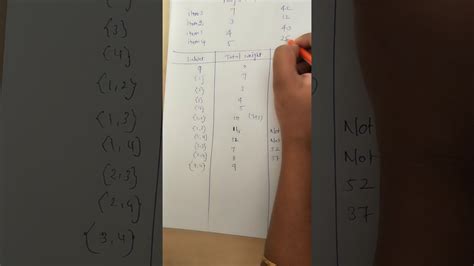 item1 7 42
item2 3 12
item3 4 40
item4 5 25
Subset Total weight
φ 0
{1} 7
{2} 3
{3} 4
{4} 5
{1,2} 10
{1,3} 11
{1,4} 12
{2,3} 7 52
{2,4} 8 37
{3,4} 9
{3}
{4}
{1,2}
{1,3}
{1,4}
{2,3}
{2,4}
{3,4}
Not
Not
52
37